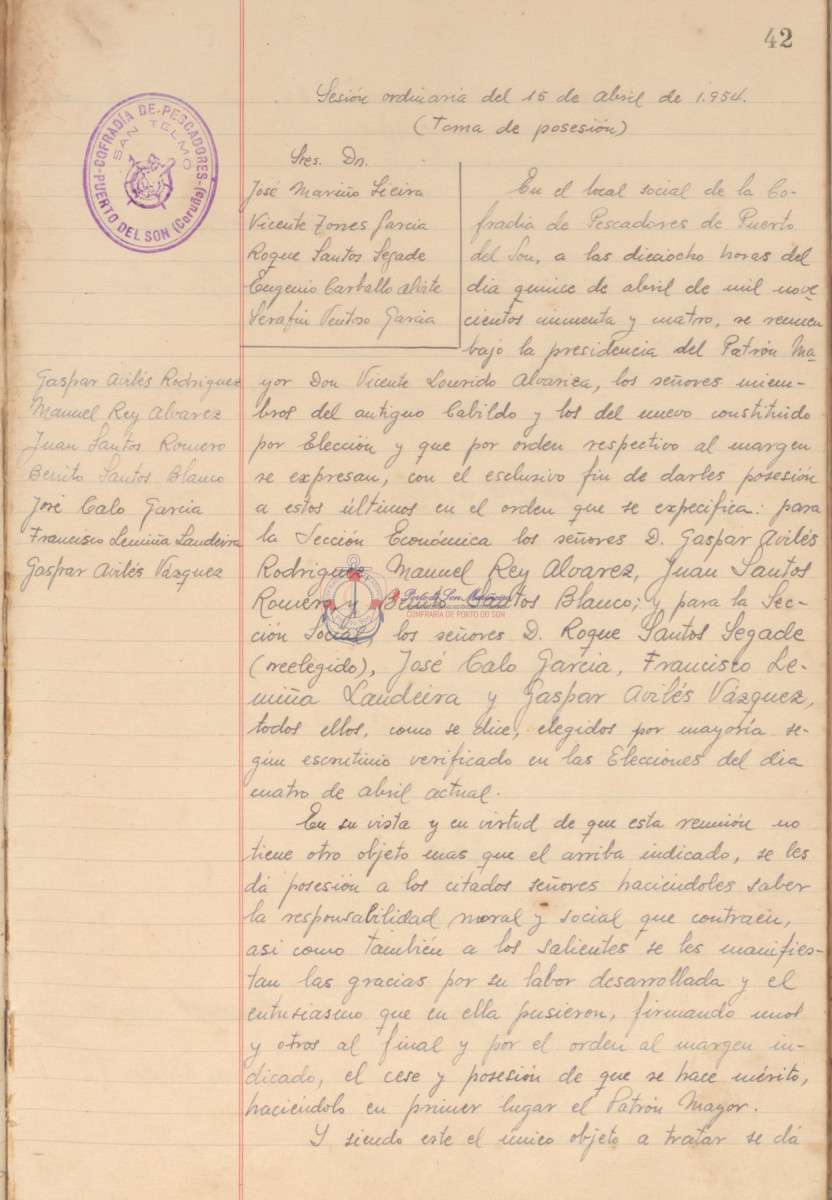 42
Sesión ordinaria del 15 de abril de 1.954.
(Toma de posesión)
COFRADÍA DE PESCADORES
SAN TELMO
PUERTO DEL SON (Coruña)
Sres. Dn.
José Mariño Sieira
Vicente Torres Garcia
Roque Santos Segade
Eugenio Carballo
Serafin Ventoso Garcia
En el local social de la Co-
fradia de Pescadores de Puerto
del Son, a las dieciocho horas del
dia quince de abril de mil nove-
cientos cincuenta y cuatro, se reunen
bajo la presidencia del Patrón Ma-
Gaspar Avilés Rodriguez
Manuel Rey Alvarez
Juan Santos Romero
Benito Santos Blanco
José Calo Garcia
Francisco Lemiña Landeira
Gaspar Avilés Vázquez
yor Don Vicente Lourido Alvariza, los señores miem-
bros del antiguo Cabildo y los del nuevo constituido
por Elección y que por orden respectivo al margen
se expresan, con el esclusivo fin de darles posesión
a estos últimos en el orden que se expecifica: para
la Sección Económica los señores D. Gaspar Avilés
Rodriguez Manuel Rey Alvarez, Juan Santos
Romero y Benito Santos Blanco; y para la Sec-
ción Social, los señores D. Roque Santos Segade
(reelegido), José Calo Garcia, Francisco Le-
miña Landeira y Gaspar Avilés Vázquez,
todos ellos, como se dice, elegidos por mayoría se-
gún escrutinio verificado en las Elecciones del dia
cuatro de abril actual.
CONFRARÍA DE PORTO DO SON
En su vista y en virtud de que esta reunión no
tiene otro objeto mas que el arriba indicado, se les
dá posesión a los citados señores haciéndoles saber
la responsabilidad moral y social que contraen,
asi como también a los salientes se les manifies-
tan las gracias por su labor desarrollada y el
entusiasmo que en ella pusieron, firmando unos
y otros al final y por el orden al margen in-
dicado, el cese y posesión de que se hace mérito,
haciéndolo en primer lugar el Patrón Mayor.
Y siendo este el único objeto a tratar se dá